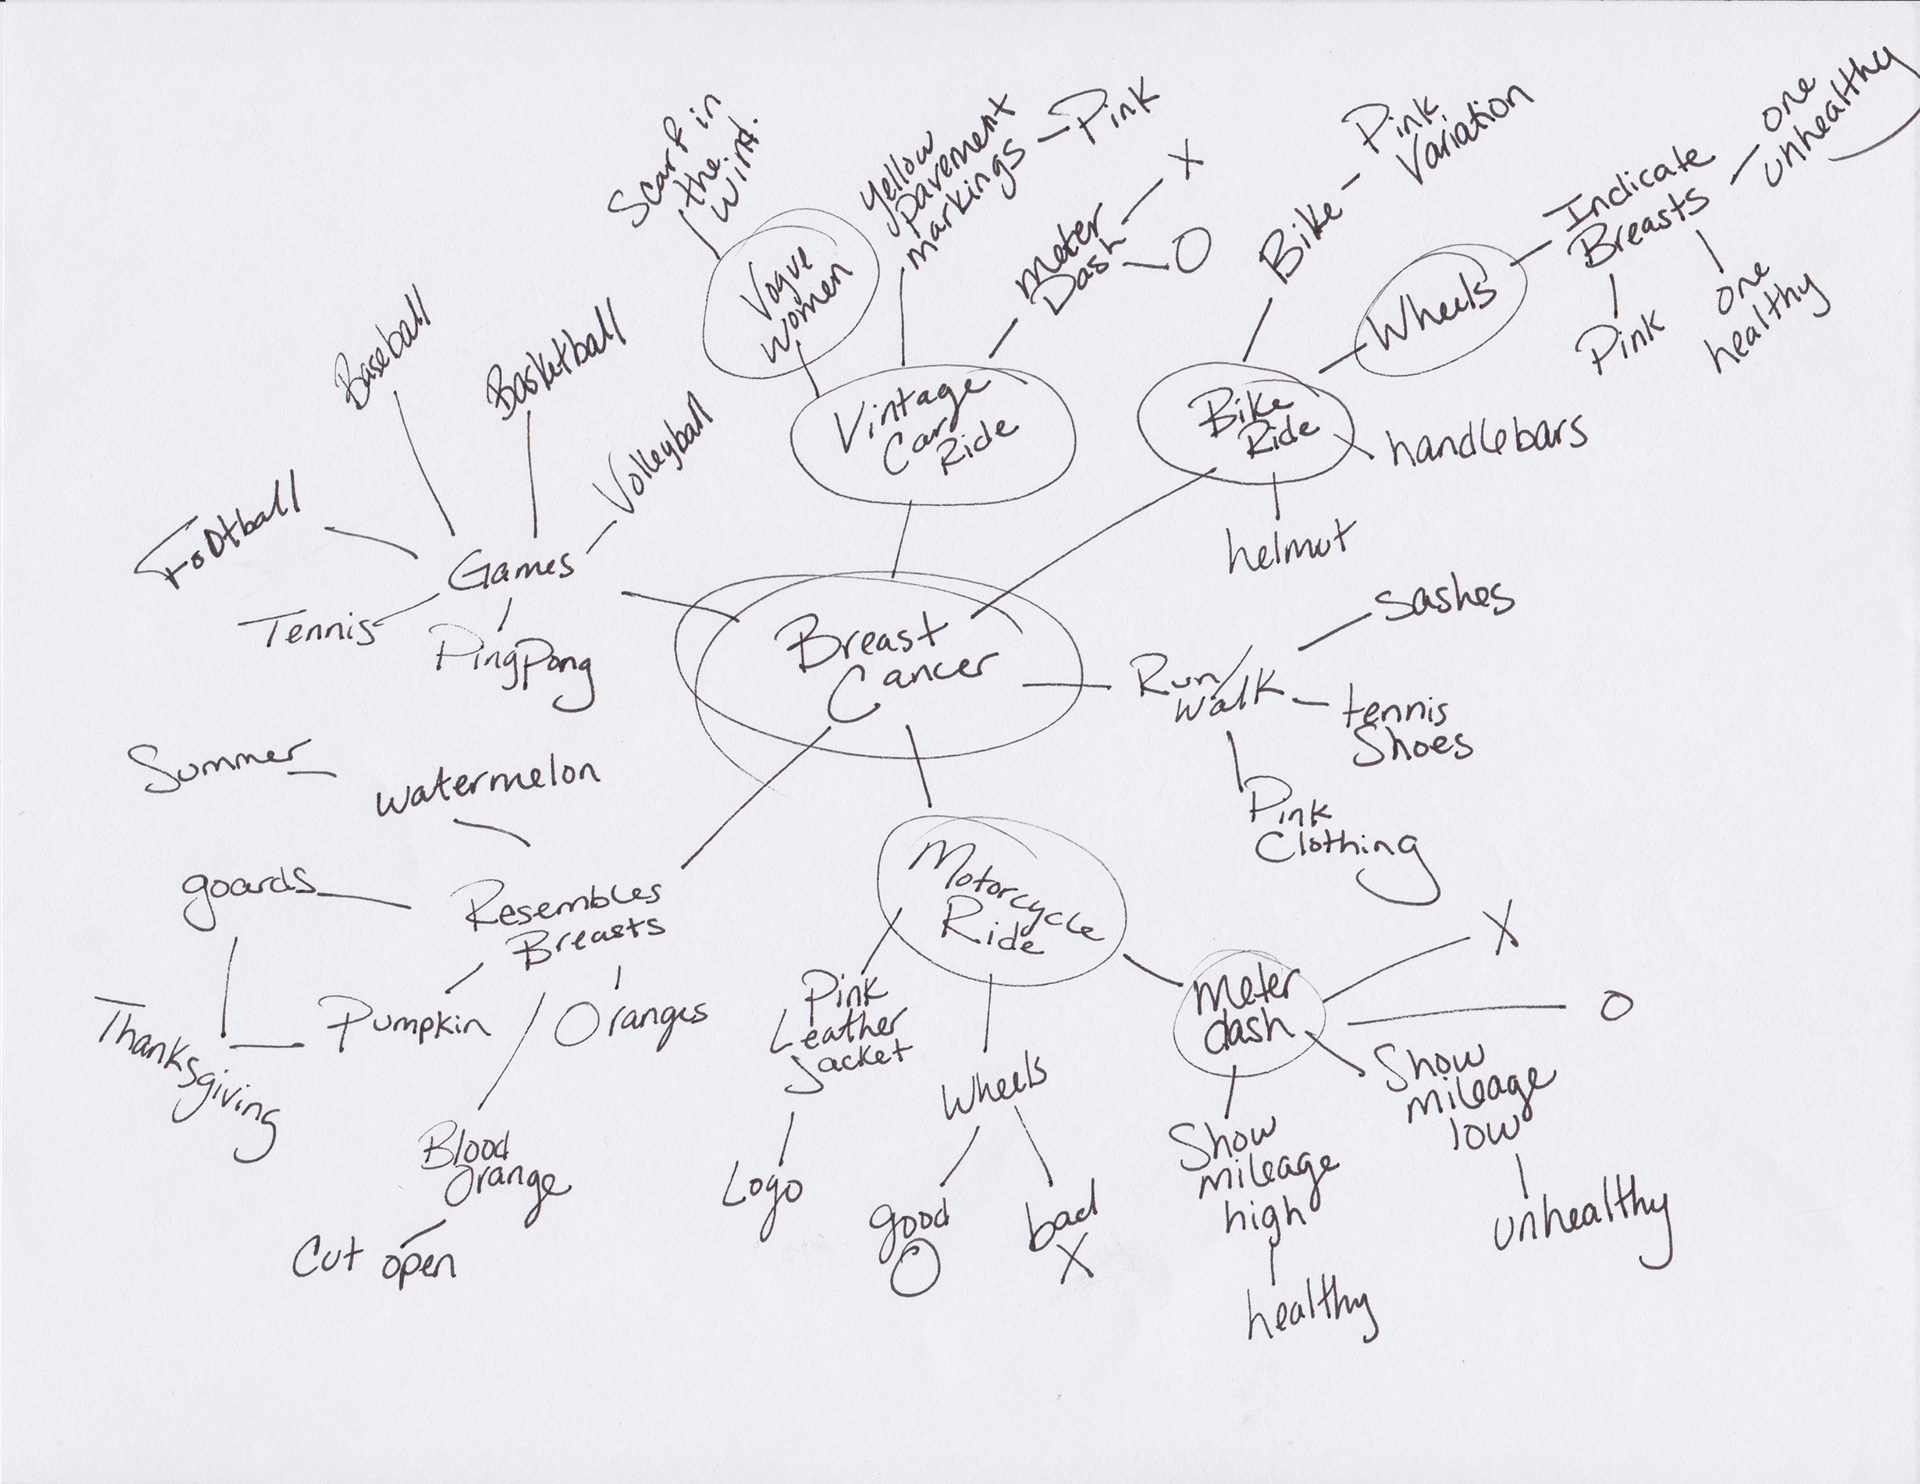 Scarf in
the
wind.
Vogue
women
yellow
pavement
markings
Pink
meter
Dash
X
O
Bike
Pink
Variation
Wheels
Indicate
Breasts
one
unhealthy
one
healthy
Pink
Baseball
Basketball
Volleyball
Football
Games
Tennis
PingPong
Vintage
Car
Ride
Bike
Ride
handlebars
helmut
Breast
Cancer
Run/
Walk
Sashes
tennis
Shoes
Pink
Clothing
Summer
watermelon
goards
Resembles
Breasts
Thanksgiving
Pumpkin
Oranges
Blood
Orange
Cut open
Motorcycle
Ride
Pink
Leather
Jacket
Logo
Wheels
good
O
bad
X
meter
dash
X
O
Show
mileage
low
unhealthy
Show
mileage
high
healthy